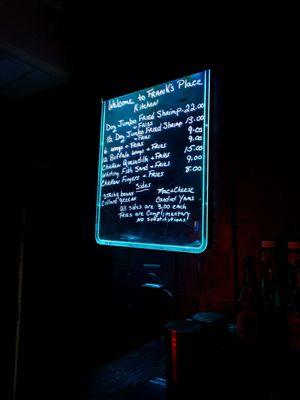 Welcome to Frank's Place
Kitchen
Doz Jumbo Fried Shrimp 22.00
+ Fries
½ Doz Jumbo Fried Shrimp 13.00
+ Fries
6 wings + Fries 9.00
12 Buffalo wings + Fries 15.00
Chicken Quesadilla + Fries 9.00
Whiting Fish Sand + Fries
Chicken Fingers + Fries 8.00
Sides
String beans Mac+Cheese
Collard greens Candied Yams
All sides are 3.00 each
Fries are Complimentary
No substitutions